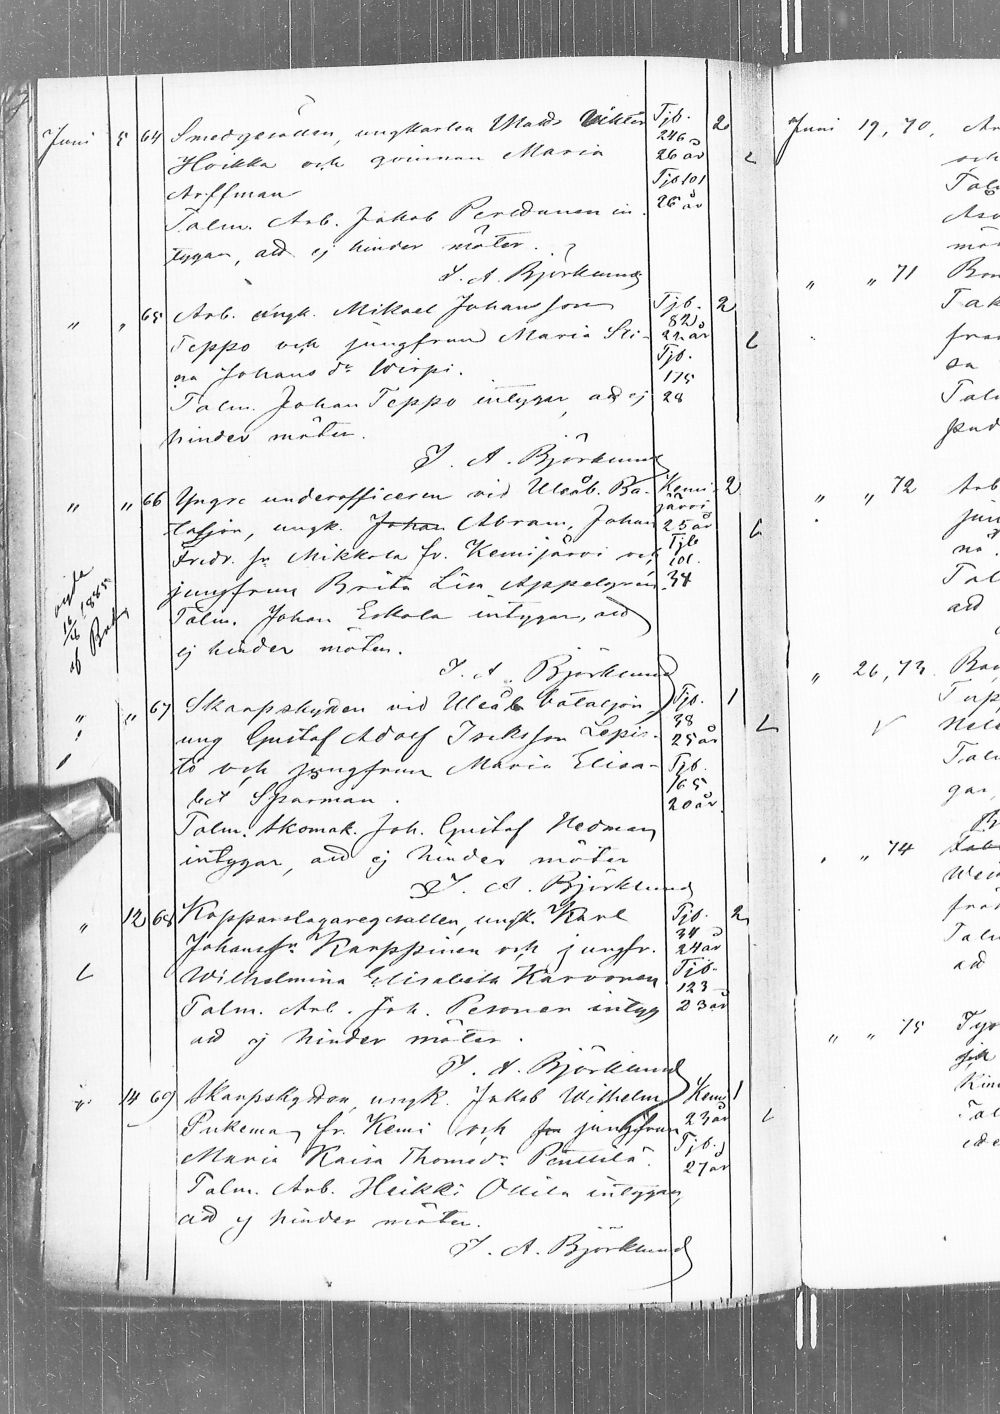 Juni 5 64 Smedgesällen, ungkarlen Matts Viktor Tjb. 2
Hoikka och qvinnan Maria 246 26 år
Arffman Tjb 101
Talm. Arb. Jakob in- 26 år
tygar, att ej hinder möter.
J. A. Björklund
" " 65 Arb. ungk. Mikael Johansson Tjb. 2
Teppo och jungfrun Maria Sti- 82 22 år
na Johans dr Wirpi. Tjb. 175
Talm. Johan Teppo intygar att ej 28
hinder möter.
J. A. Björklund
" " 66 Yngre underofficeren vid Uleåb. Ba- Kemi- 2
taljon, ungk. Johan Abram, Johan järvi 25 år
Fredr. sn Mikkola fr. Kemijärvi och Tjb 101.
jungfrun Brita Lisa Appelgren 34
Talm. Johan Eskola intygar, att
ej hinder möter.
J. A. Björklund
vigde
1885
af
" " 67 Skarpskytten vid Uleåb bataljon Tjb. 1
ung Gustaf Adolf Isaksson Lepis- 38 25 år
tö och jungfrun Maria Elisa- Tjb. 165
bet Sparman. 20 år
Talm. Skomak. Joh. Gustaf Hedman
intygar, att ej hinder möter
J. A. Björklund
" 12 68 Kopparslagaregesällen, ungk. Karl Tjb. 2
Johanssn Karppinen och jungfr. 34 24 år
Wilhelmina Elisabeth Karvonen Tjb. 123
Talm. Arb. Joh. Pesonen intyg 23 år
att ej hinder möter.
J. A. Björklund
" 14 69 Skarpskytten, ungk. Jakob Wilhelm Kemi 1
Pukema fr. Kemi och jungfrun 23 år
Maria Kaisa Thomsdr Penttilä. Tjb. 27 år
Talm. Arb. Heikki Ollila intygar,
att ej hinder möter.
J. A. Björklund
Juni 19, 70, Ar
och
Tal
" " 71
Tak
fra
sa
Tal
" " 72 Arb
jun
na
Tal
att
" 26, 73
Tal
gar,
" " 74
från
Talm
ad
" " 75 Tyr
Tal